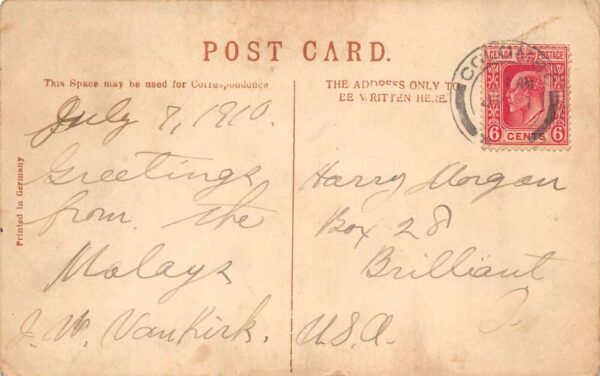 POST CARD.
This Space may be used for Correspondence
THE ADDRESS ONLY TO
BE WRITTEN HERE.
July 7, 1910.
Greetings
from the
Malays
J. W. VanKirk.
Printed in Germany
Harry Morgan
Box 28
Brilliant
O.
U.S.A.
CEYLON
6 CENTS 6